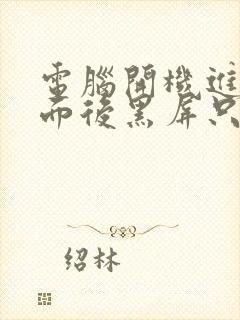 電腦開機進
而後黑屏只
绍林